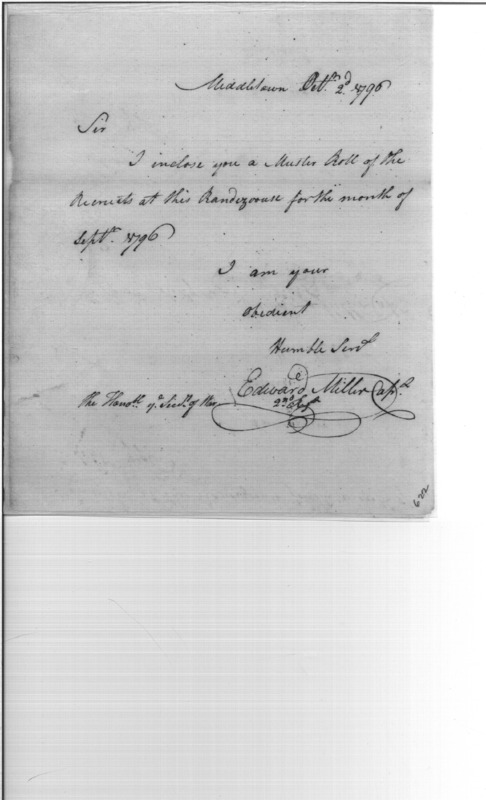 Middletown Octr. 2d. 1796
Sir
I inclose you a Muster Roll of the
Recruits at this Randezvouse for the month of
Septr. 1796
I am your
obedient
Humble Servt
Edward Miller Capt.
the Honble. ye Secty. of War
622